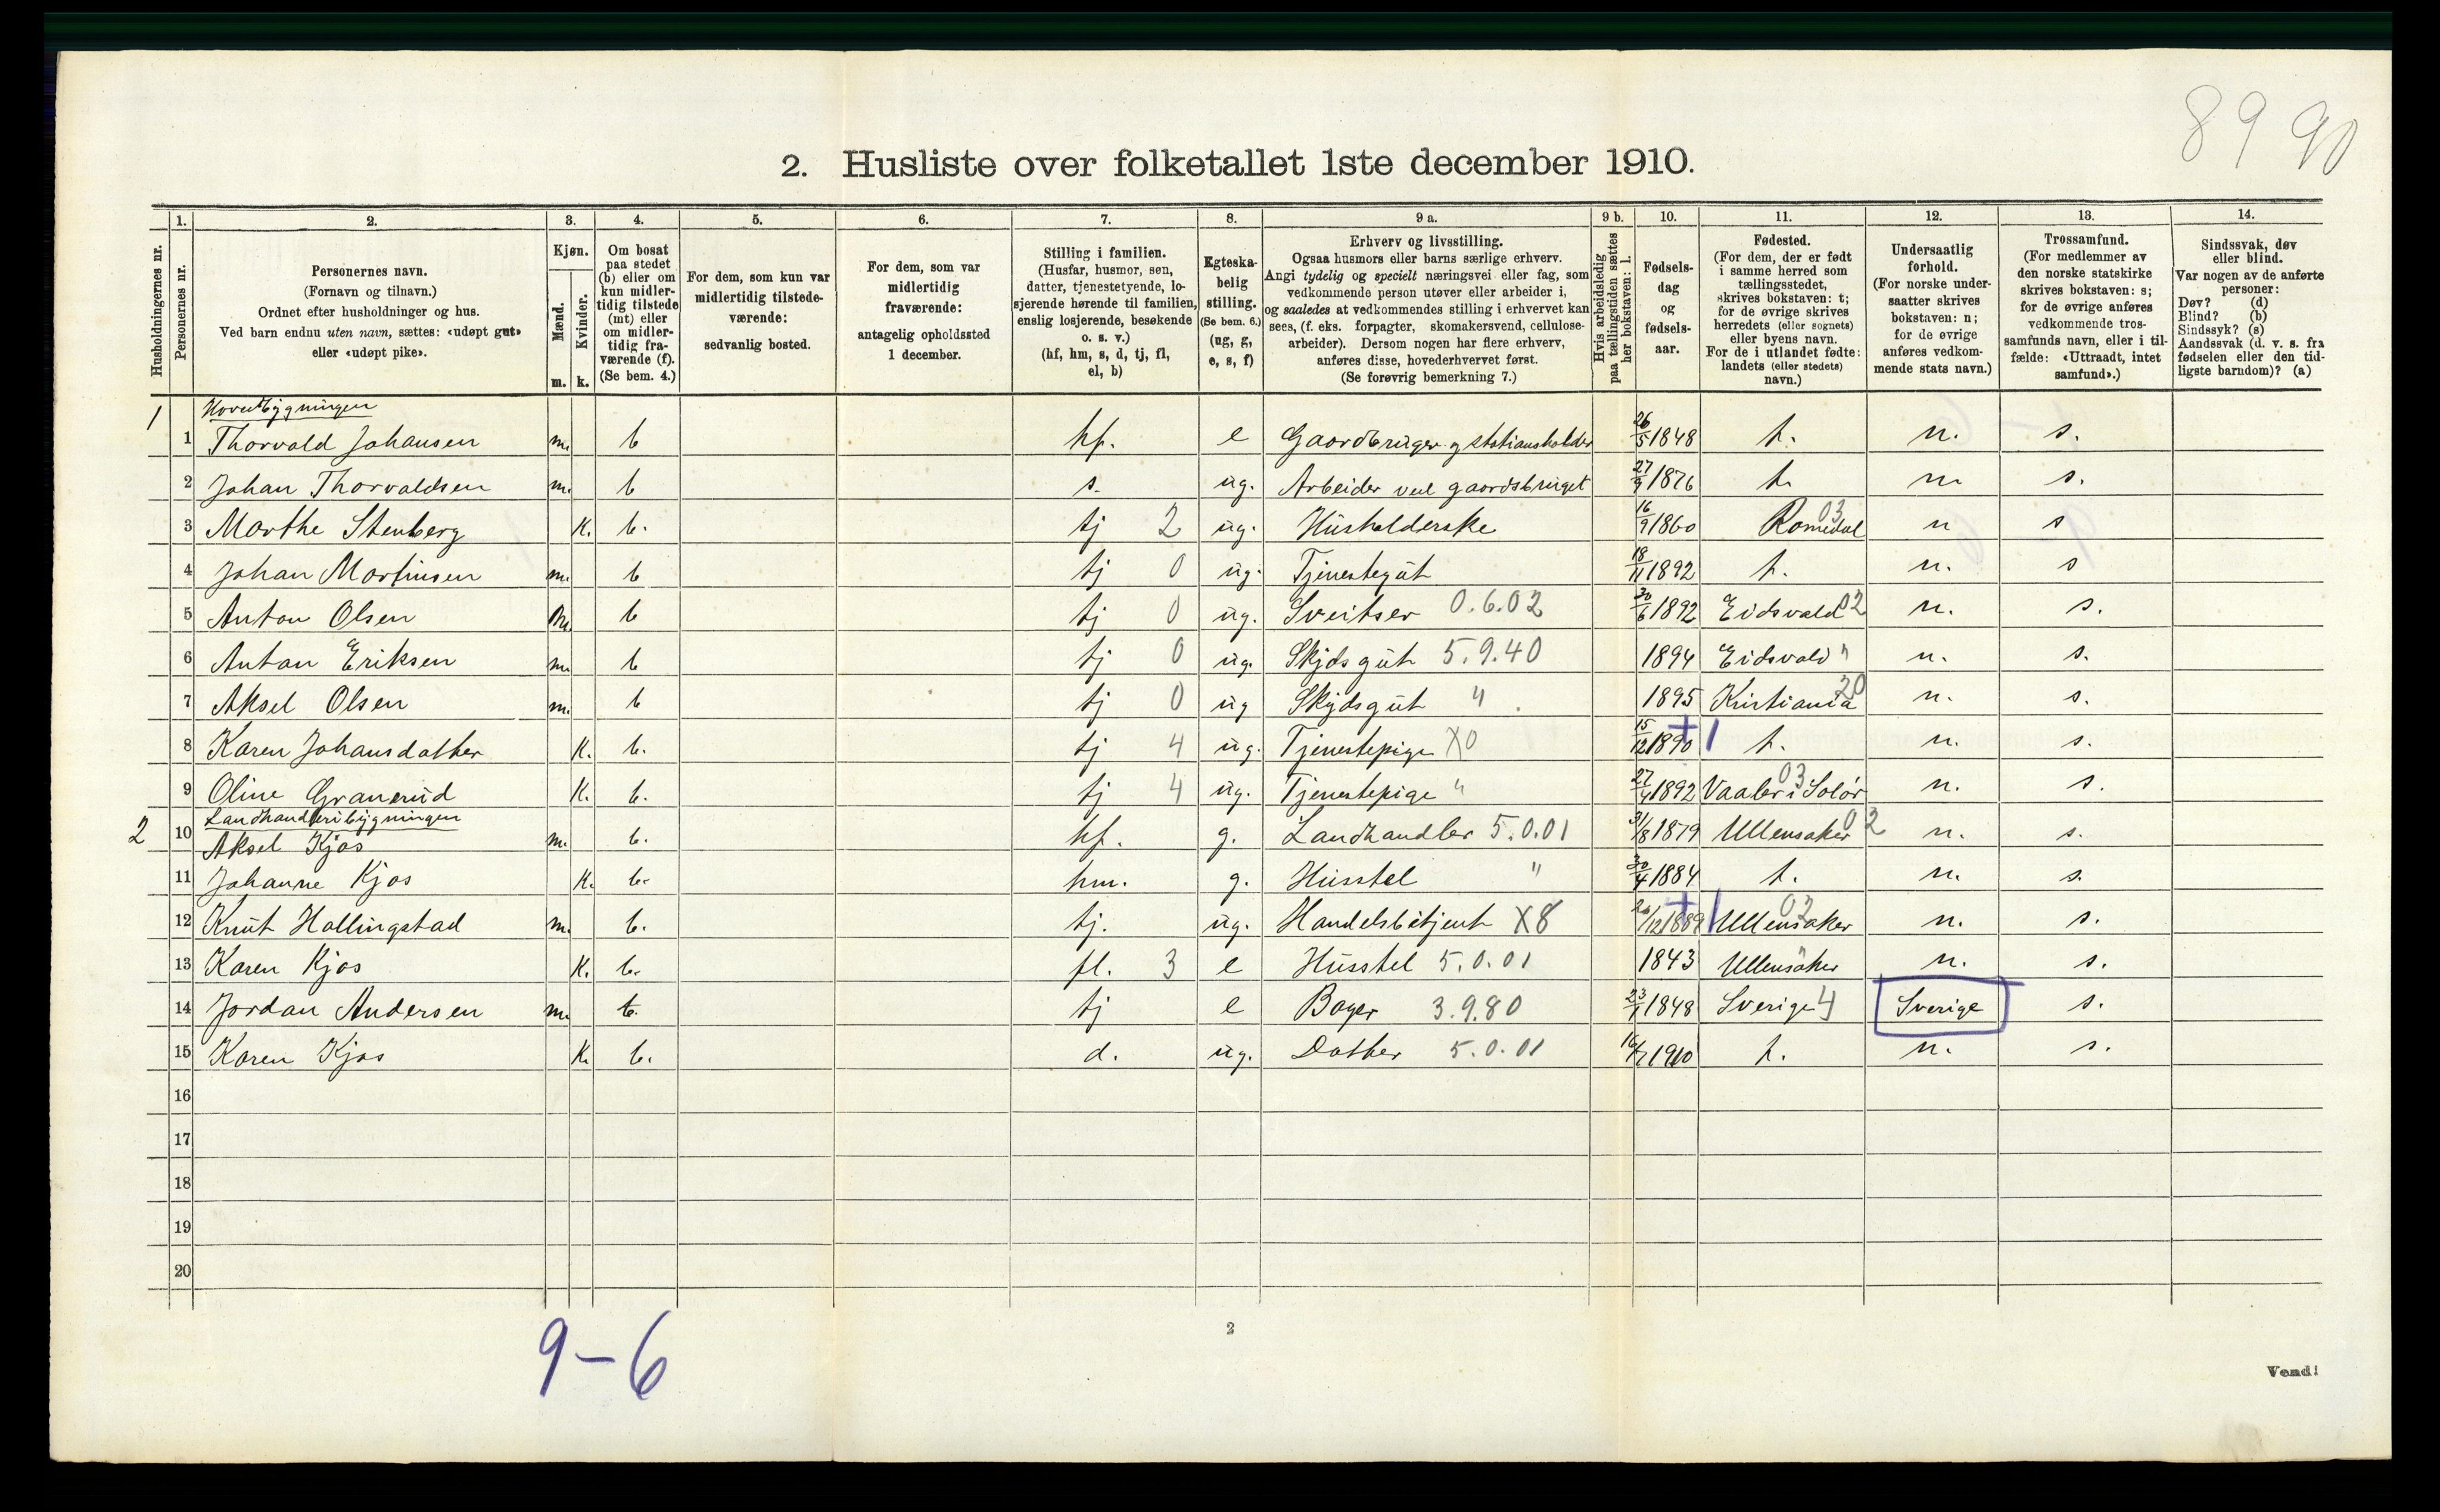 89 90
2. Husliste over folketallet 1ste december 1910.
Husholdningernes nr.
1. Personernes nr.
2. Personernes navn. (Fornavn og tilnavn.) Ordnet efter husholdninger og hus. Ved barn endnu uten navn, sættes: «udøpt gut» eller «udøpt pike».
3. Kjøn. Mænd. m. Kvinder. k.
4. Om bosat paa stedet (b) eller om kun midlertidig tilstede (mt) eller om midlertidig fraværende (f). (Se bem. 4.)
5. For dem, som kun var midlertidig tilstedeværende: sedvanlig bosted.
6. For dem, som var midlertidig fraværende: antagelig opholdssted 1 december.
7. Stilling i familien. (Husfar, husmor, søn, datter, tjenestetyende, losjerende hørende til familien, enslig losjerende, besøkende o. s. v.) (hf, hm, s, d, tj, fl, el, b)
8. Egteskabelig stilling. (Se bem. 6.) (ug, g, e, s, f)
9 a. Erhverv og livsstilling. Ogsaa husmors eller barns særlige erhverv. Angi tydelig og specielt næringsvei eller fag, som vedkommende person utøver eller arbeider i, og saaledes at vedkommendes stilling i erhvervet kan sees, (f. eks. forpagter, skomakersvend, cellulosearbeider). Dersom nogen har flere erhverv, anføres disse, hovederhvervet først. (Se forøvrig bemerkning 7.)
9 b. Hvis arbeidsledig paa tællingstiden sættes her bokstaven: l.
10. Fødselsdag og fødselsaar.
11. Fødested. (For dem, der er født i samme herred som tællingsstedet, skrives bokstaven: t; for de øvrige skrives herredets (eller sognets) eller byens navn. For de i utlandet fødte: landets (eller stedets) navn.)
12. Undersaatlig forhold. (For norske undersaatter skrives bokstaven: n; for de øvrige anføres vedkommende stats navn.)
13. Trossamfund. (For medlemmer av den norske statskirke skrives bokstaven: s; for de øvrige anføres vedkommende trossamfunds navn, eller i tilfælde: «Uttraadt, intet samfund».)
14. Sindssvak, døv eller blind. Var nogen av de anførte personer: Døv? (d) Blind? (b) Sindssyk? (s) Aandssvak (d. v. s. fra fødselen eller den tidligste barndom)? (a)
Hovedbygningen
1 1 Thorvald Johansen m. b hf. e Gaardbruger og skatiansholder 26/5 1848 t. n. s.
2 Johan Thorvaldsen m. b s. ug. Arbeider ved gaardsbruget 27/9 1876 t. n s.
3 Marthe Stenberg K. b. tj 2 ug. Husholderske 16/9 1860 Romedal 03 n s
4 Johan Martinsen m. b tj 0 ug. Tjenestegut 18/11 1892 t. n. s
5 Anton Olsen m. b tj 0 ug. Sveitser 0.6.02 30/6 1892 Eidsvald 02 n. s.
6 Anton Eriksen m. b tj 0 ug. Skjdsgut 5.9.40 1894 Eidsvald " n. s.
7 Aksel Olsen m. b tj 0 ug Skydsgut " . 1895 Kristiania 20 n. s.
8 Karen Johansdatter K. b. tj 4 ug. Tjenestepige X0 15/12 1890 +1 t. n. s.
9 Oline Granerud K. b. tj 4 ug. Tjenestepige " 27/4 1892 Vaaler i Solør 03 n. s.
Landhandleribygningen
2 10 Aksel Kjos m. b. hf. g. Landhandler 5.0.01 31/8 1879 Ullensaker 02 n. s.
11 Johanne Kjos K. b. hm. g. Husstel " 30/4 1884 t. n. s.
12 Knut Hallingstad m. b. tj. ug. Handelsbetjent X8 26/12 1889 +1 Ullensaker 02 n. s.
13 Karen Kjos K. b. fl. 3 e Husstel 5.0.01 1843 Ullensaker " n. s.
14 Jordan Andersen m. b. tj e Bager 3.9.80 23/1 1848 Sverige 4 Sverige s.
15 Karen Kjos K. b. d. ug. Datter 5.0.01 16/7 1910 t. n. s.
16
17
18
19
20
9-6
2
Vend!